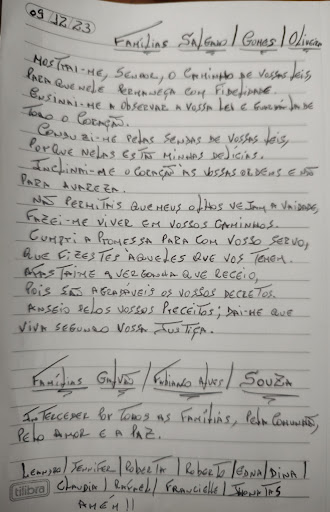 09/12/23
Famílias Salgado/Gomes/Oliveira
Mostrai-me, Senhor, o caminho de vossas leis,
para que nele permaneça com fidelidade.
Ensinai-me a observar a vossa lei e guardá-la de
todo o coração.
Conduzi-me pelas sendas de vossas leis,
porque nelas estão minhas delícias.
Inclinai-me o coração às vossas ordens e não
para avareza.
Não permitais que meus olhos vejam a vaidade,
fazei-me viver em vossos caminhos.
Cumpri a promessa para com vosso servo,
que fizestes àqueles que vos temem.
Afastai-me a vergonha que receio,
pois são agradáveis os vossos decretos.
Anseio pelos vossos preceitos; dai-me que
viva segundo vossa justiça.
Famílias Galvão/Fabiano Alves/Souza
Interceder por todos as famílias, pela comunhão,
pelo amor e a paz.
Leandro/Jennifer/Roberta/Roberto/Edna/Dina/
Claudia/Rafael/Francielle/Jhonatas
Amém!!
tilibra